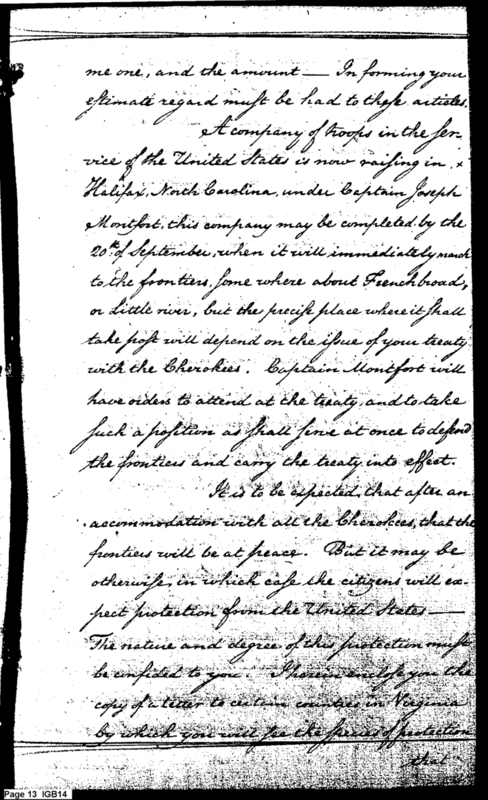 me one, and the amount — In forming your
estimate regard must be had to these articles.
A company of troops in the ser-
vice of the United States is now raising in
Halifax, North Carolina, under Captain Joseph
Montfort, this company may be completed by the
20th of September, when it will immediately march
to the frontiers, some where about Frenchbroad,
or Little river, but the precise place where it shall
take post will depend on the issue of your treaty
with the Cherokees. Captain Montfort will
have orders to attend at the treaty, and to take
such a position as shall serve at once to defend
the frontiers and carry the treaty into effect.
It is to be expected, that after an
accommodation with all the Cherokees, that the
frontiers will be at peace. But it may be
otherwise, in which case the citizens will ex-
pect protection from the United States —
The nature and degree of this protection must
be confided to you. I herein enclose you the
copy of a letter to certain counties in Virginia
by which you will see the species of protection
that
Page 13 IGB14